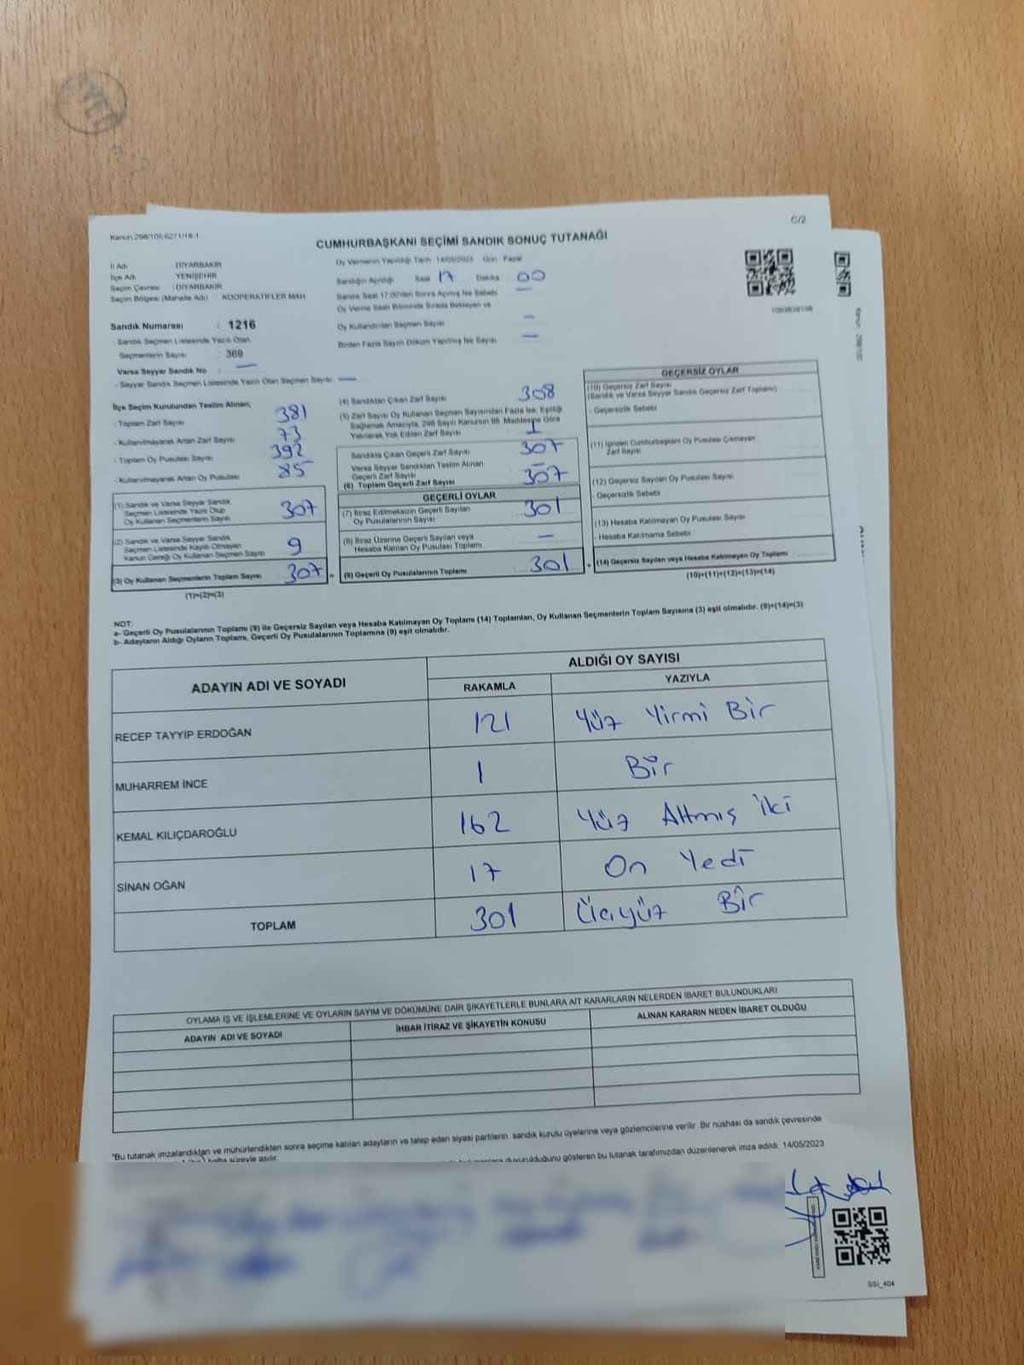 Kanun:298/105;6271/16-1
C/2
CUMHURBAŞKANI SEÇİMİ SANDIK SONUÇ TUTANAĞI
İl Adı : DİYARBAKIR
İlçe Adı : YENİŞEHİR
Seçim Çevresi : DİYARBAKIR
Seçim Bölgesi (Mahalle Adı) : KOOPERATİFLER MAH
Oy Vermenin Yapıldığı Tarih 14/05/2023 Gün Pazar
Sandığın Açıldığı Saat 17 Dakika 00
Sandık Saat 17:00'den Sonra Açılmış İse Sebebi —
Oy Verme Saati Bitiminde Sırada Bekleyen ve
Oy Kullandırılan Seçmen Sayısı —
Birden Fazla Sayım Döküm Yapılmış İse Sayısı —
Sandık Numarası : 1216
- Sandık Seçmen Listesinde Yazılı Olan
Seçmenlerin Sayısı : 369
Varsa Seyyar Sandık No : —
- Seyyar Sandık Seçmen Listesinde Yazılı Olan Seçmen Sayısı : —
İlçe Seçim Kurulundan Teslim Alınan;
- Toplam Zarf Sayısı 381
- Kullanılmayarak Artan Zarf Sayısı 73
- Toplam Oy Pusulası Sayısı 392
- Kullanılmayarak Artan Oy Pusulası 85
(1) Sandık ve Varsa Seyyar Sandık
Seçmen Listesinde Yazılı Olup
Oy Kullanan Seçmenlerin Sayısı 307
(2) Sandık ve Varsa Seyyar Sandık
Seçmen Listesinde Kayıtlı Olmayan
Kanun Gereği Oy Kullanan Seçmen Sayısı 9
(3) Oy Kullanan Seçmenlerin Toplam Sayısı 307
(1)+(2)=(3)
(4) Sandıktan Çıkan Zarf Sayısı 308
(5) Zarf Sayısı Oy Kullanan Seçmen Sayısından Fazla İse, Eşitliği
Sağlamak Amacıyla, 298 Sayılı Kanunun 98. Maddesine Göre
Yakılarak Yok Edilen Zarf Sayısı 1
Sandıkta Çıkan Geçerli Zarf Sayısı 307
Varsa Seyyar Sandıktan Teslim Alınan
Geçerli Zarf Sayısı
(6) Toplam Geçerli Zarf Sayısı 307
GEÇERLİ OYLAR
(7) İtiraz Edilmeksizin Geçerli Sayılan
Oy Pusulalarının Sayısı 301
(8) İtiraz Üzerine Geçerli Sayılan veya
Hesaba Katılan Oy Pusulası Toplamı —
(9) Geçerli Oy Pusulalarının Toplamı 301
GEÇERSİZ OYLAR
(10) Geçersiz Zarf Sayısı
(Sandık ve Varsa Seyyar Sandık Geçersiz Zarf Toplamı)
- Geçersizlik Sebebi
(11) İçinden Cumhurbaşkanı Oy Pusulası Çıkmayan
Zarf Sayısı
(12) Geçersiz Sayılan Oy Pusulası Sayısı
- Geçersizlik Sebebi
(13) Hesaba Katılmayan Oy Pusulası Sayısı
- Hesaba Katılmama Sebebi
(14) Geçersiz Sayılan veya Hesaba Katılmayan Oy Toplamı
(10)+(11)+(12)+(13)=(14)
NOT:
a- Geçerli Oy Pusulalarının Toplamı (9) ile Geçersiz Sayılan veya Hesaba Katılmayan Oy Toplamı (14) Toplamları, Oy Kullanan Seçmenlerin Toplam Sayısına (3) eşit olmalıdır. (9)+(14)=(3)
b- Adayların Aldığı Oyların Toplamı, Geçerli Oy Pusulalarının Toplamına (9) eşit olmalıdır.
ADAYIN ADI VE SOYADI
ALDIĞI OY SAYISI
RAKAMLA YAZIYLA
RECEP TAYYİP ERDOĞAN 121 Yüz Yirmi Bir
MUHARREM İNCE 1 Bir
KEMAL KILIÇDAROĞLU 162 Yüz Altmış iki
SİNAN OĞAN 17 On Yedi
TOPLAM 301 Üçyüz Bir
OYLAMA İŞ VE İŞLEMLERİNE VE OYLARIN SAYIM VE DÖKÜMÜNE DAİR ŞİKAYETLERLE BUNLARA AİT KARARLARIN NELERDEN İBARET BULUNDUKLARI
ADAYIN ADI VE SOYADI İHBAR İTİRAZ VE ŞİKAYETİN KONUSU ALINAN KARARIN NEDEN İBARET OLDUĞU
"Bu tutanak imzalandıktan ve mühürlendikten sonra seçime katılan adayların ve talep eden siyasi partilerin sandık kurulu üyelerine veya gözlemcilerine verilir. Bir nüshası da sandık çevresinde
hafta süreyle asılır.
duyurulduğunu gösteren bu tutanak tarafımızdan düzenlenerek imza edildi. 14/05/2023
SSt_404